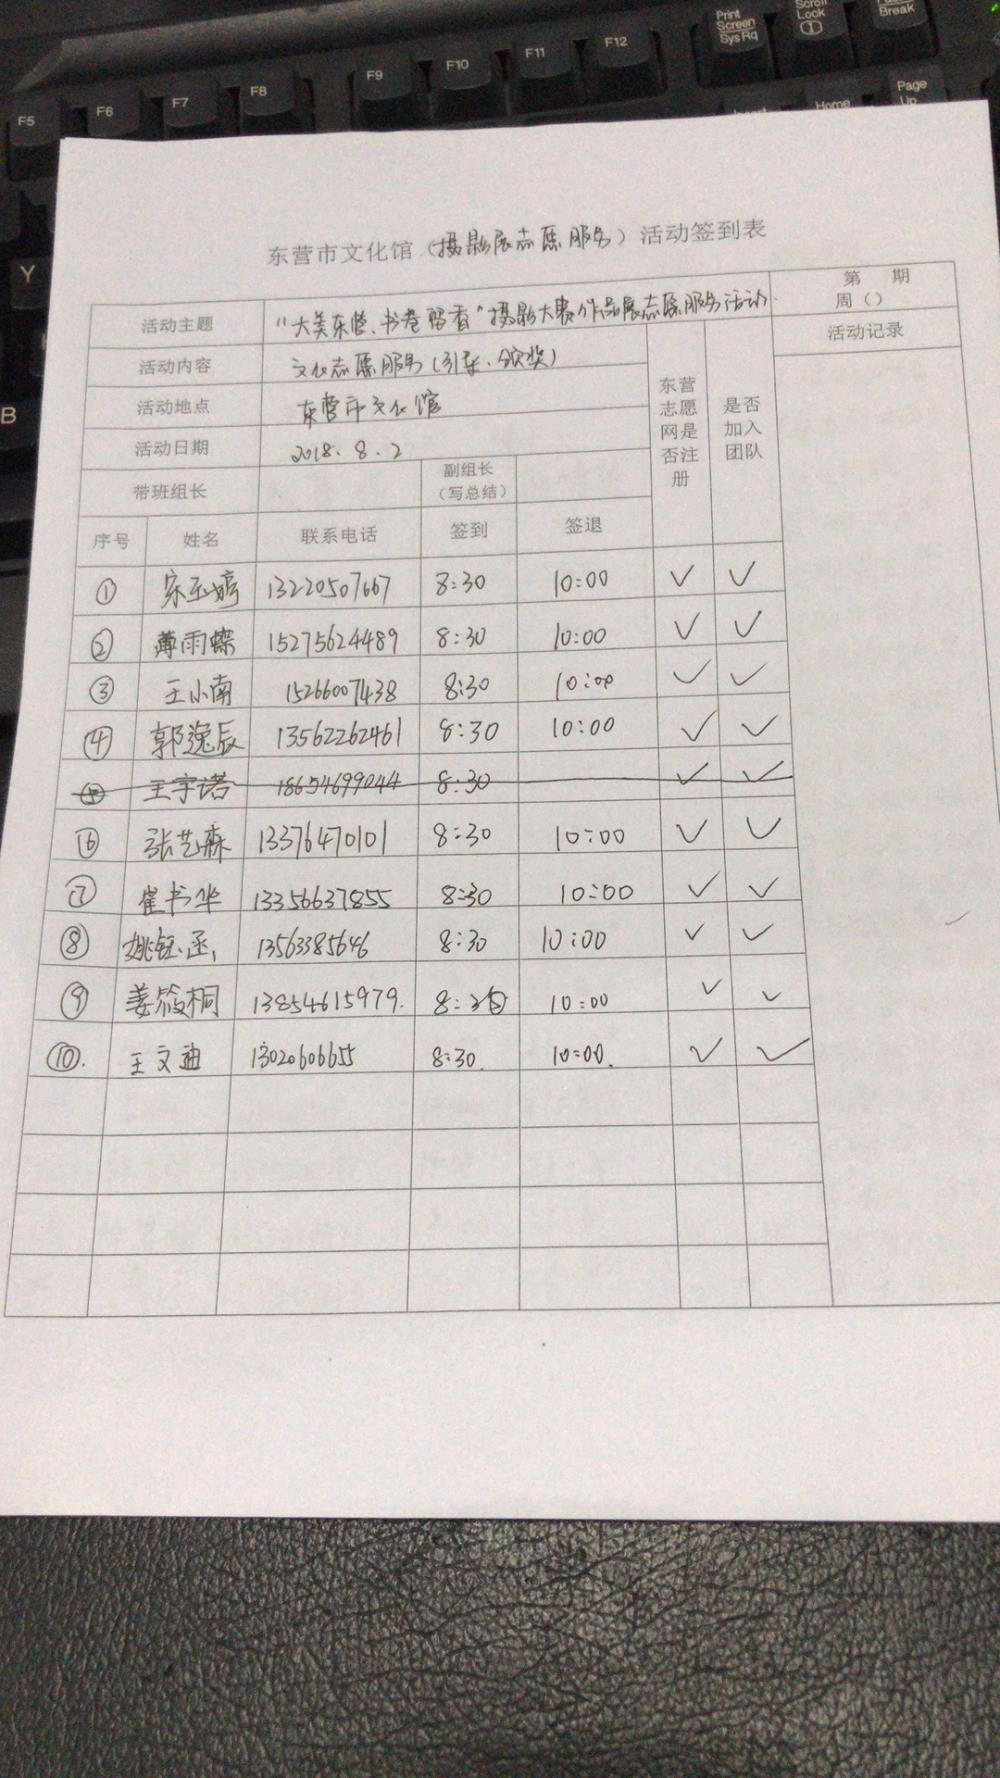 Print Screen SysRq
Scroll Lock
Break
F5 F6 F7 F8 F9 F10 F11 F12
Home
Page Up
Y
B
东营市文化馆（摄影展志愿服务）活动签到表
活动主题 "大美东营、书卷留香"摄影大赛作品展志愿服务活动 第 期 周（）
活动内容 文化志愿服务(引导、颁奖) 东营志愿网是否注册 是否加入团队 活动记录
活动地点 东营市文化馆
活动日期 2018.8.2
带班组长 副组长（写总结）
序号 姓名 联系电话 签到 签退
① 宋玉婷 13220507667 8:30 10:00 ✓ ✓
② 薄雨蝶 15275624489 8:30 10:00 ✓ ✓
③ 王小南 15266007438 8:30 10:00 ✓ ✓
④ 郭逸辰 13562262461 8:30 10:00 ✓ ✓
⑤ 王宇诺 18654699044 8:30 ✓ ✓
⑥ 张艺森 13376470101 8:30 10:00 ✓ ✓
⑦ 崔书华 13356637855 8:30 10:00 ✓ ✓
⑧ 姚钰函 13563385646 8:30 10:00 ✓ ✓
⑨ 姜筱桐 13854615979. 8:30 10:00 ✓ ✓
⑩. 王文迪 13020606655 8:30. 10:00. ✓ ✓